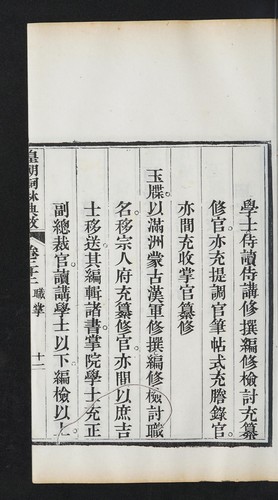 學士侍讀侍講修撰編修檢討充纂
修官亦充提調官筆帖式充謄錄官
亦間充收掌官纂修
玉牒以滿洲蒙古漢軍修撰編修檢討職
名移宗人府充纂修官亦間以庶吉
士移送其編輯諸書掌院學士充正
副總裁官讀講學士以下編檢以上
皇朝詞林典故 卷二十二 職掌 十一